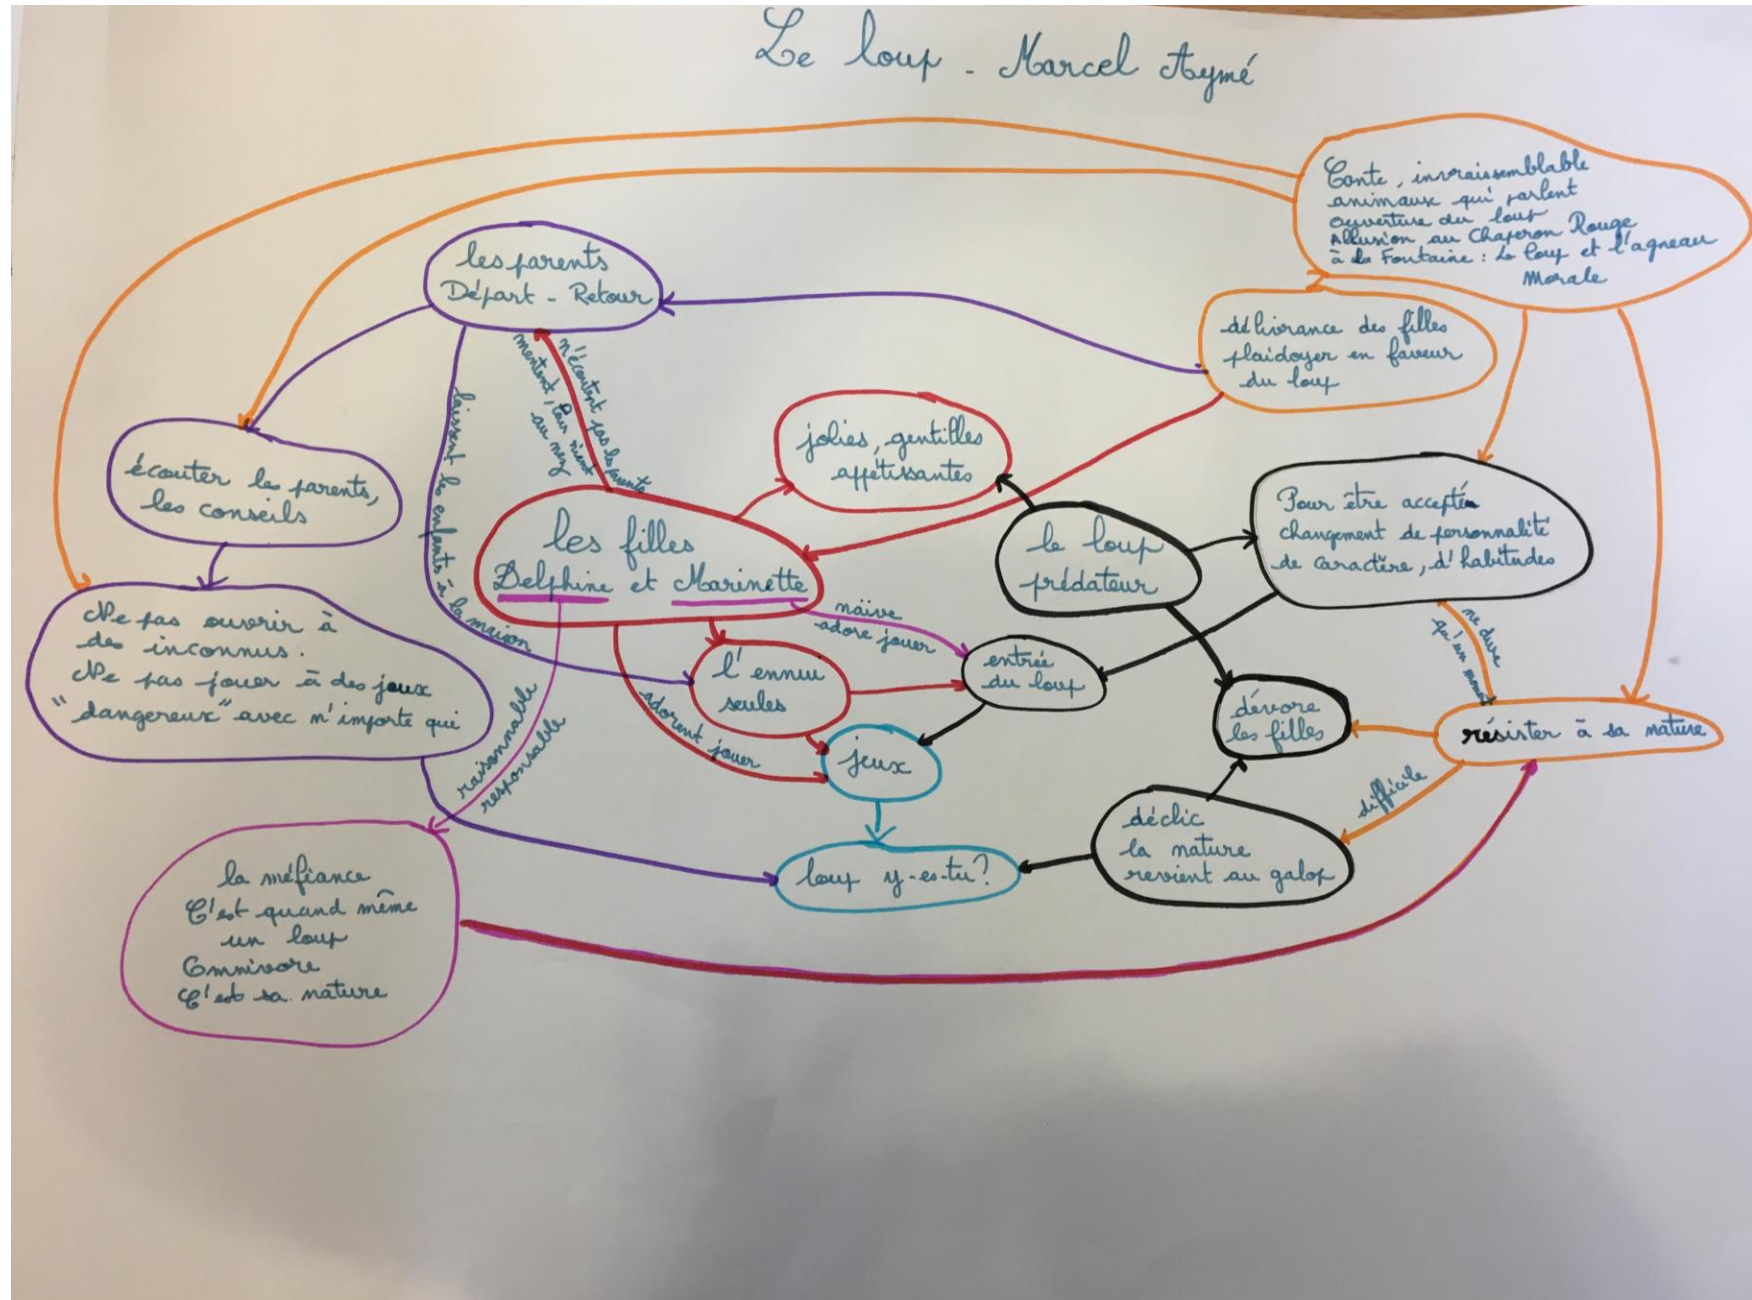 Le loup - Marcel Aymé
Conte, invraissemblable
animaux qui parlent
ouverture du loup
Allusion au Chaperon Rouge
à la Fontaine : Le loup et l'agneau
Morale
les parents
Départ - Retour
délivrance des filles
plaidoyer en faveur
du loup
n'écoutent pas les parents
mentent, leur rient
au nez
laissent les enfants à la maison
jolies, gentilles
appétissantes
écouter les parents,
les conseils
les filles
Delphine et Marinette
le loup
prédateur
Pour être accepté
changement de personnalité
de caractère, d'habitudes
Ne pas ouvrir à
des inconnus.
Ne pas jouer à des jeux
"dangereux" avec n'importe qui
naïve
adore jouer
l'ennui
seules
entrée
du loup
ne dure
qu'un moment
dévore
les filles
résister à sa nature
adorent jouer
jeux
raisonnable
responsable
difficile
déclic
la nature
revient au galop
loup y-es-tu?
la méfiance
C'est quand même
un loup
Omnivore
C'est sa nature